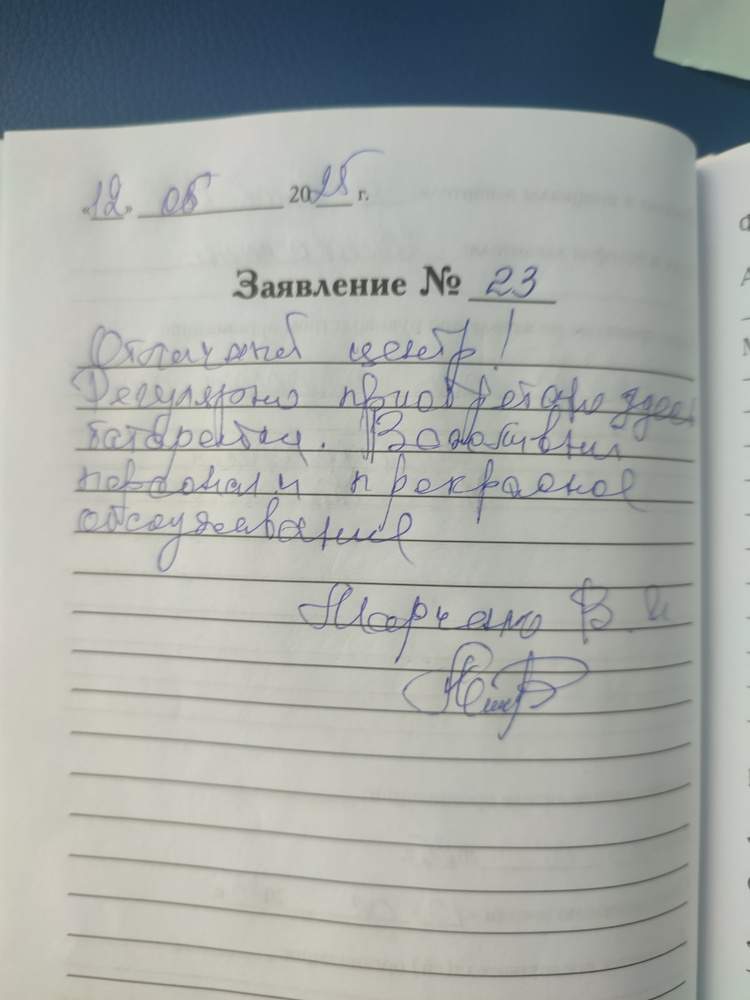 «12» 05 2025 г.
Заявление № 23
Отличный центр!
Регулярно приобретаю здесь
батарейки. Вежливый
персонал и прекрасное
обслуживание
Марченко В. И